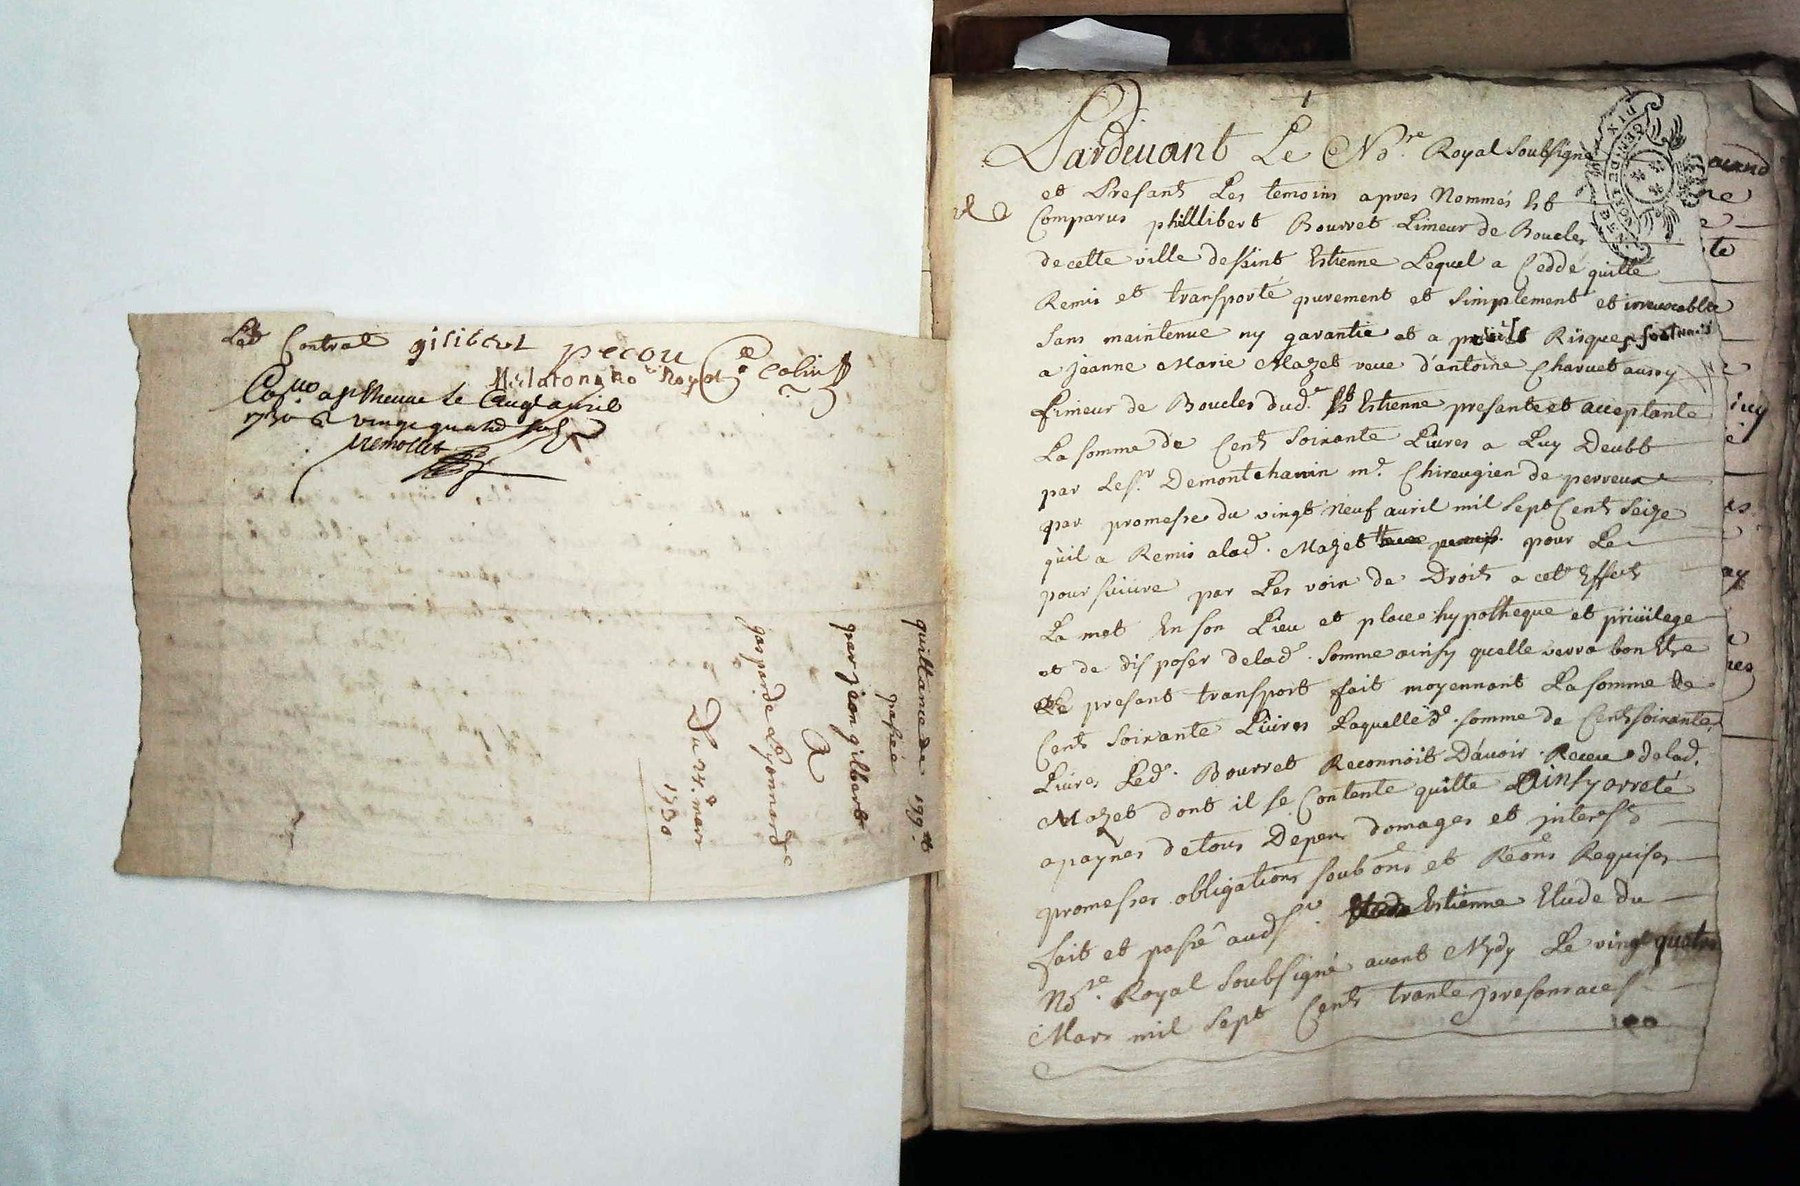 Led Contrat gilibert pecou
Melaton no Royal Colin
a st Etienne le cinq avril
1730 R vingt quatre sols
quittance de 199 lt
passée
par jean gilbert
A
gasparde Lyonnard
Du 24 mars
1730
Pardevant Le No.re Royal Soubsigné
et Presant Les temoins apres Nommés Est
Comparus phillibert Bourret Limeur de Boucles
de cette ville de Saint Estienne Lequel a Ceddé quitté
Remis et transporté purement et simplement et irrevocable
sans maintenue ny garantie et a Risques
a jeanne Marie Mazet veue d'antoine Charvet aussy
Limeur de Boucles dud. St Estienne presante et acceptante
La somme de Cent soixante Livres a Luy Deubt
par Le sr. Demontchanin me. Chireugien de perreux
par promesse du vingt neuf avril mil sept Cent seize
quil a Remis a lad. Mazet pour Le
poursuivre par Les voix de Droit a cet Effect
La met En son Lieu et place hypotheque et privilege
et de disposer de lad. somme ainsy quelle verra bon Etre
Le presant transport fait moyennant La somme de
Cent soixante Livres Laquelle d. somme de Cent soixante
Livres Led. Bourret Reconnoit D'avoir Receu de lad.
Mazet dont il se Contente quitte Ainsy arreté
a paynes de tous Depens domages et interest
promesses obligations soubons et Reons Requises
fait et passé aud st. Estienne Etude du
No.re Royal Soubsigné avant Mydy Le vingt quatre
Mars mil sept Cent trante presances
DIX
DEN